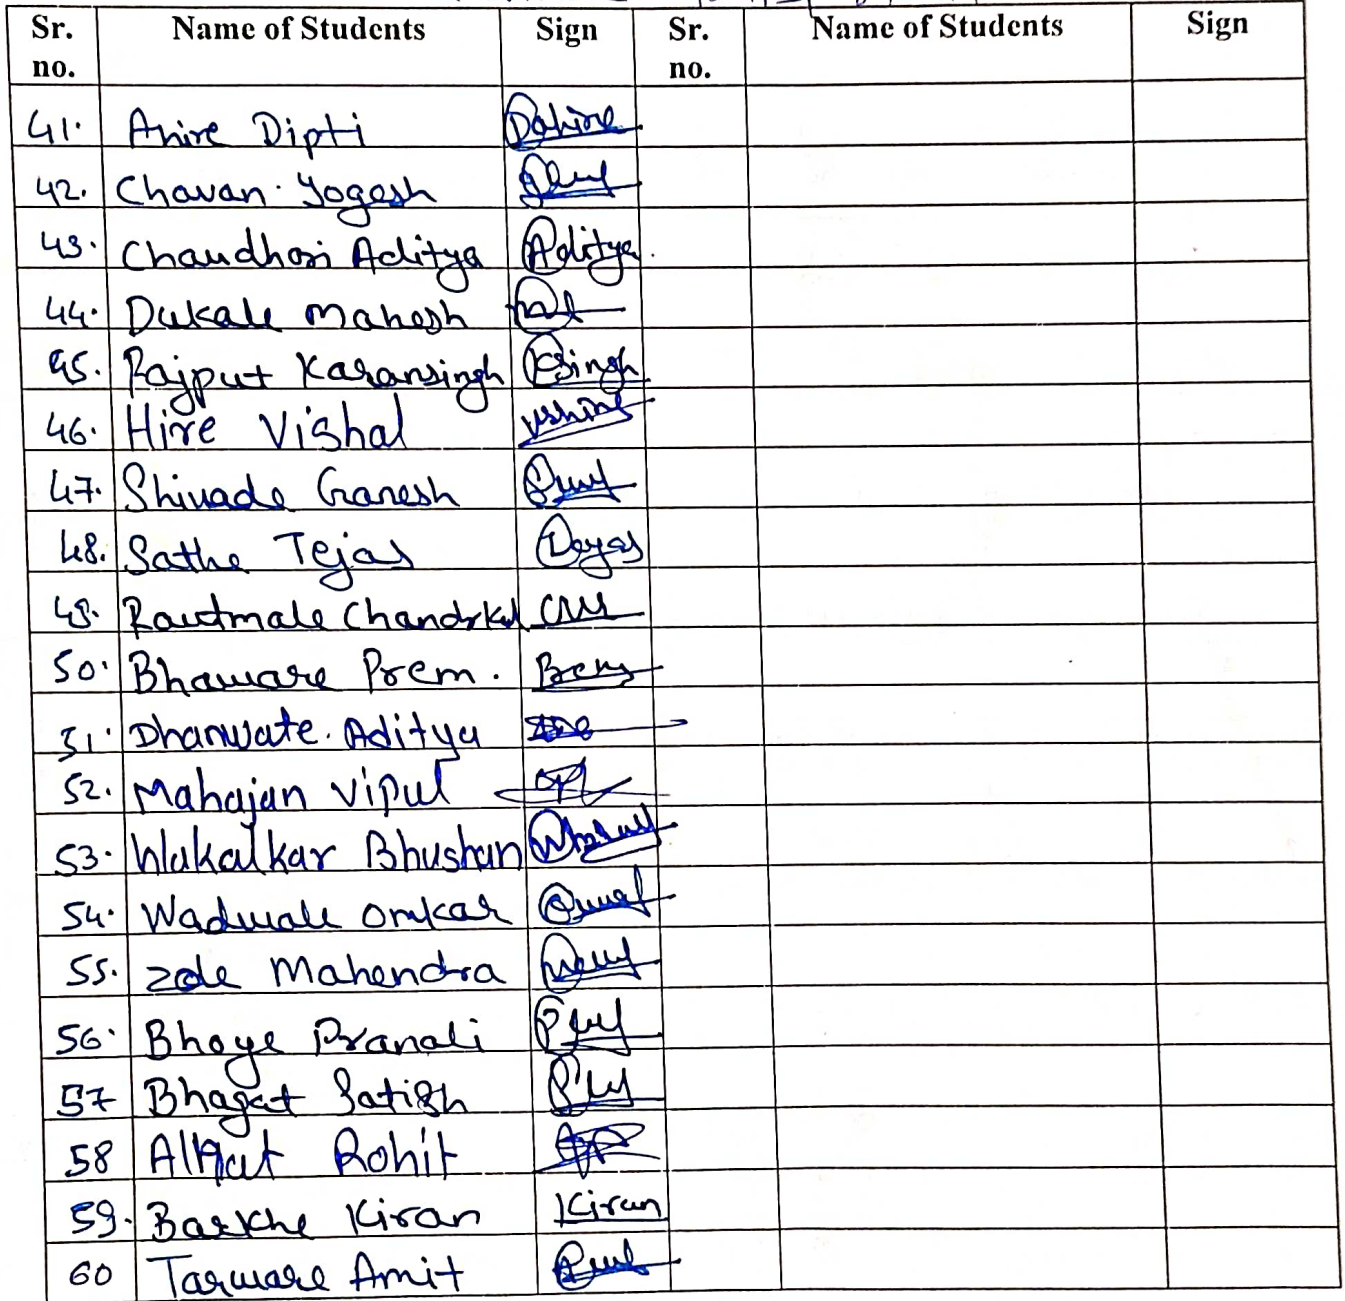 Sr. no. Name of Students Sign Sr. no. Name of Students Sign
41. Ahire Dipti Dahire
42. Chavan. Yogesh
43. Chaudhari Aditya Aditya.
44. Dukale Mahesh
45. Rajput Karansingh Ksingh
46. Hire Vishal
47. Shivade Ganesh
48. Sathe Tejas Tejas
49. Rautmale Chandrkal
50. Bhaware Prem.
51. Dhanwate. Aditya
52. Mahajan Vipul
53. Wakalkar Bhushan
54. Wadwale Omkar
55. Zole Mahendra
56. Bhoye Pranali
57 Bhagat Satish
58 Alhat Rohit
59. Barkhe Kiran Kiran
60 Tarware Amit